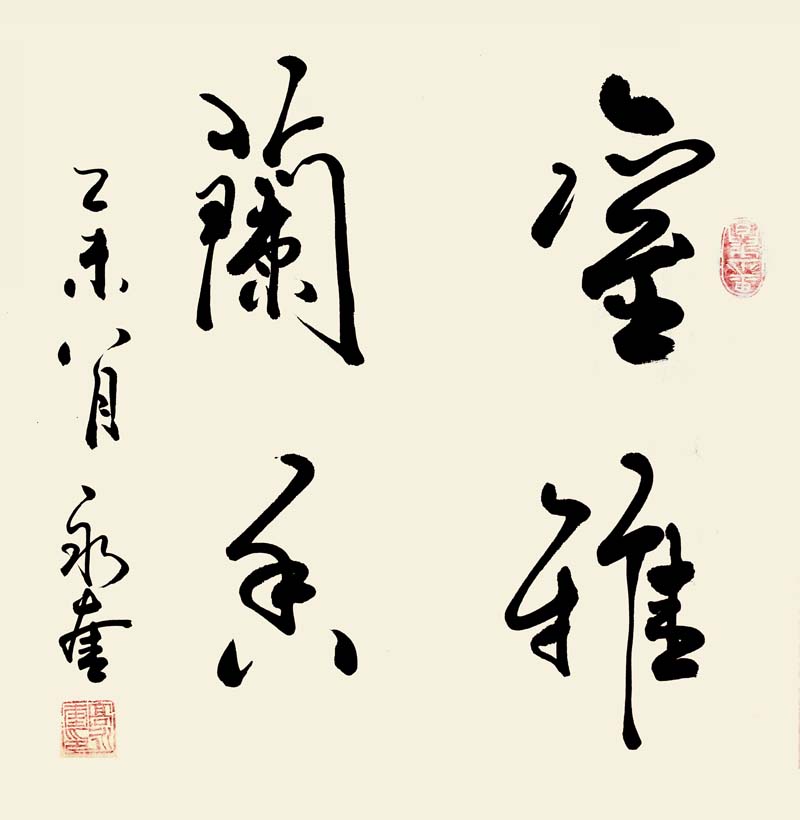 室雅
蘭香
乙未八月永奎